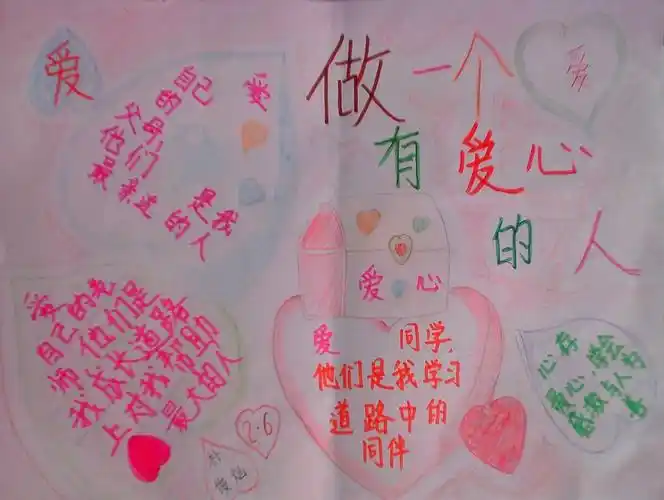 做一个
有爱心
的人
爱
爱
爱自己
的父母
他们是我
最亲近的人
爱自己的老
师他们是
我成长道路
上对我帮助
最大的人
爱心
爱同学,
他们是我学习
道路中的
同伴
心存
爱心
2·6